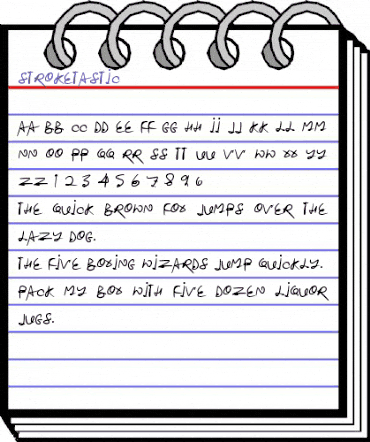 STROKETASTIC
AA BB CC DD EE FF GG HH II JJ KK LL MM
NN OO PP QQ RR SS TT UU VV WW XX YY
ZZ 1 2 3 4 5 6 7 8 9 0
THE QUICK BROWN FOX JUMPS OVER THE
LAZY DOG.
THE FIVE BOXING WIZARDS JUMP QUICKLY.
PACK MY BOX WITH FIVE DOZEN LIQUOR
JUGS.